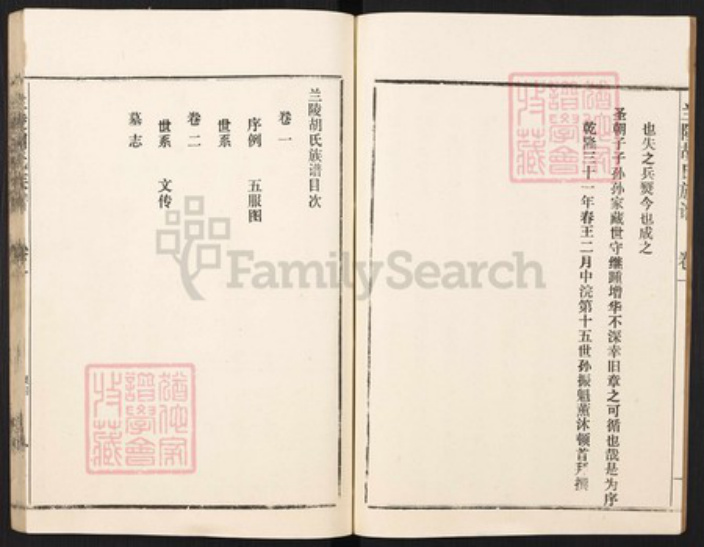 兰陵胡氏族谱 卷一
也失之兵燹今也成之
圣朝于子孙孙家藏世守继踵增华不深幸旧章之可循也哉是为序
乾隆三十一年春王二月中浣第十五世孙振魁薰沐顿首拜撰
兰陵胡氏族谱目次
卷一
序例 五服图
世系
卷二
世系 文传
墓志
FamilySearch
猶他家
譜學會
收藏
猶他家
譜學會
收藏